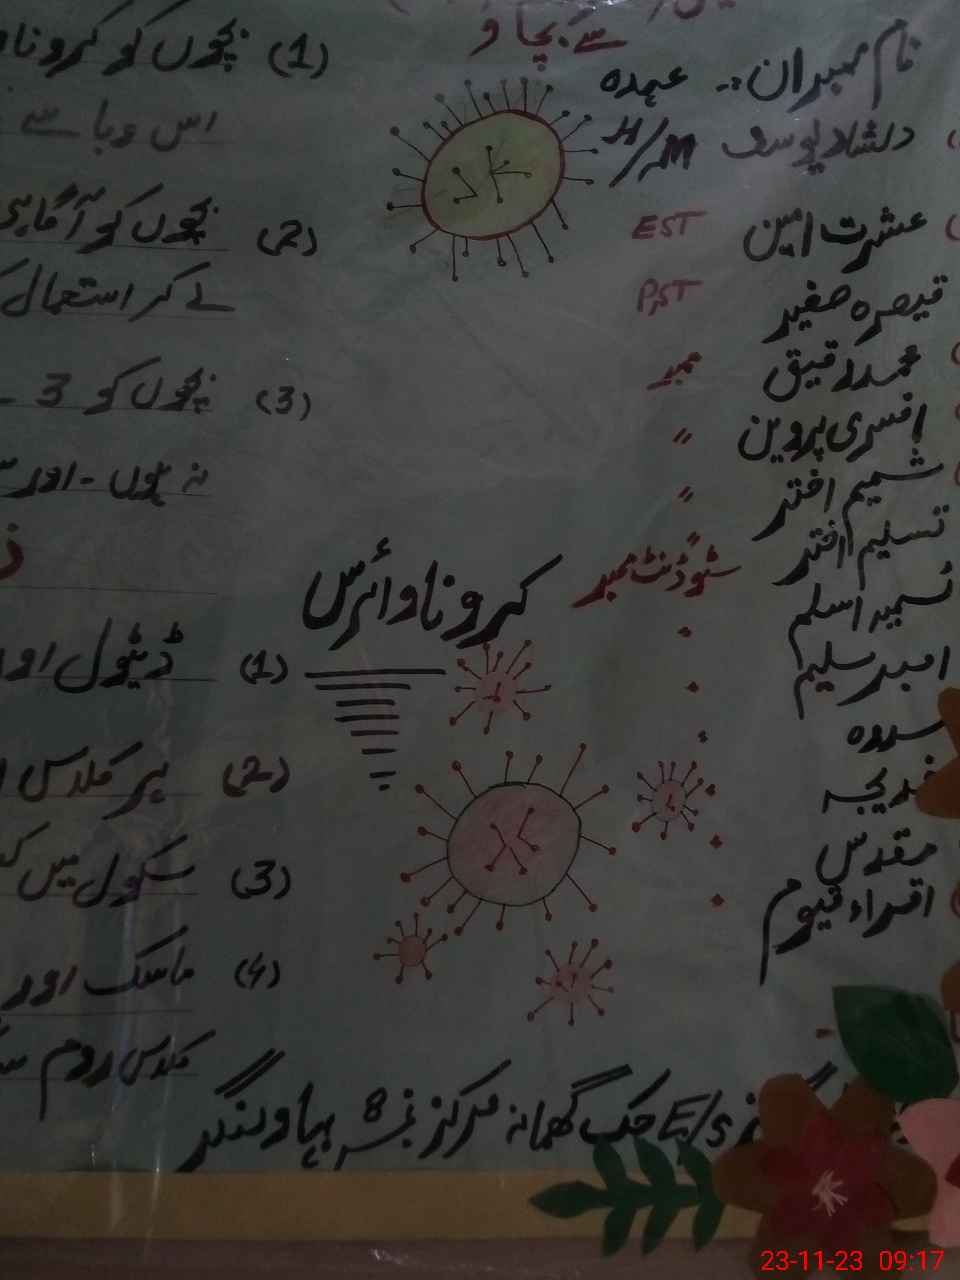 سے بچاؤ
نام ممبران :- عہدہ
دلشاد یوسف H/M
عشرت امین EST
قیصرہ صغیر PST
محمد رفیق ممبر
افسری پروین "
شمیم اختر "
تسلیم اختر
سٹوڈنٹ ممبر
اسلم
سلیم
سدرہ
خدیجہ
مقدس
اقراء قیوم
کرونا وائرس
(1) بچوں کو کرونا
اس وبا سے
(2) بچوں کو آگاہی
لے کر استعمال
(3) بچوں کو 3
نہ ہوں - اور
(1) ڈیٹول اور
(2) ہر کلاس
(3) سکول میں
(4) ماسک اور
کلاس روم
E/S چک گھمانہ مرکز نمبر 8 بہاولنگر
23-11-23 09:17